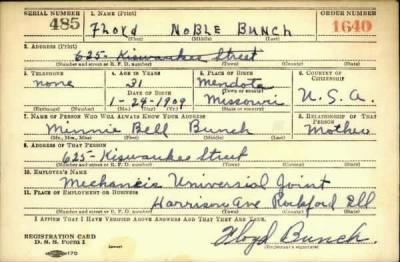 SERIAL NUMBER 1. NAME (Print) ORDER NUMBER
485 Floyd NOBLE BUNCH 1640
(First) (Middle) (Last)
2. ADDRESS (Print)
625- Kiswaukee Street
(Number and street or R. F. D. number) (Town) (County) (State)
3. TELEPHONE 4. AGE IN YEARS 5. PLACE OF BIRTH 6. COUNTRY OF CITIZENSHIP
none 31 Mendota
DATE OF BIRTH (Town or county)
1-24-1909 Missouri U.S.A.
(Exchange) (Number) (Mo.) (Day) (Yr.) (State or country)
7. NAME OF PERSON WHO WILL ALWAYS KNOW YOUR ADDRESS 8. RELATIONSHIP OF THAT PERSON
Minnie Bell Bunch Mother
(Mr., Mrs., Miss) (First) (Middle) (Last)
9. ADDRESS OF THAT PERSON
625- Kiswaukee Street
(Number and street or R. F. D. number) (Town) (County) (State)
10. EMPLOYER'S NAME
Mechancis Universial Joint
11. PLACE OF EMPLOYMENT OR BUSINESS
Harrison Ave Rockford Ill
(Number and street or R. F. D. number) (Town) (County) (State)
I AFFIRM THAT I HAVE VERIFIED ABOVE ANSWERS AND THAT THEY ARE TRUE.
REGISTRATION CARD
D. S. S. Form 1 Floyd Bunch.
(Registrant's signature)